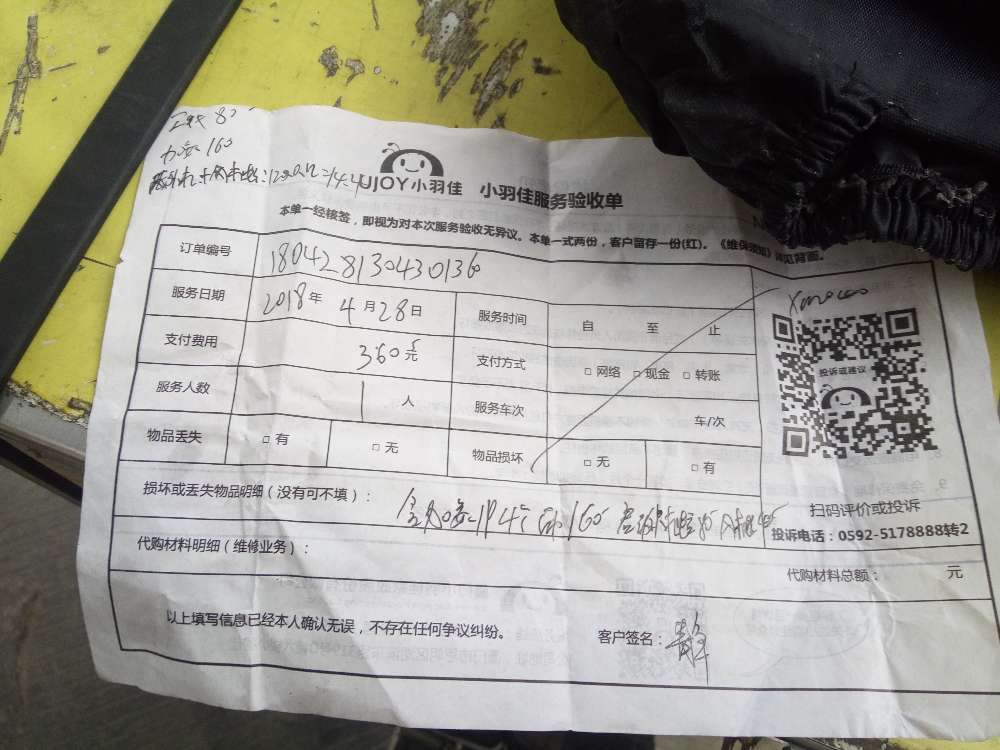 80
160
UJOY小羽佳 小羽佳服务验收单
本单一经核签，即视为对本次服务验收无异议。本单一式两份，客户留存一份(红)。《维保须知》详见背面。
订单编号 180428130430136
服务日期 2018年 4月28日 服务时间 自 至 止
支付费用 360元 支付方式 □ 网络 □ 现金 □ 转账
服务人数 1 人 服务车次 车/次
物品丢失 □ 有 □ 无 物品损坏 □ 无 □ 有
投诉或建议
扫码评价或投诉
投诉电话：0592-5178888转2
损坏或丢失物品明细（没有可不填）：
代购材料明细（维修业务）：
代购材料总额： 元
以上填写信息已经本人确认无误，不存在任何争议纠纷。 客户签名：